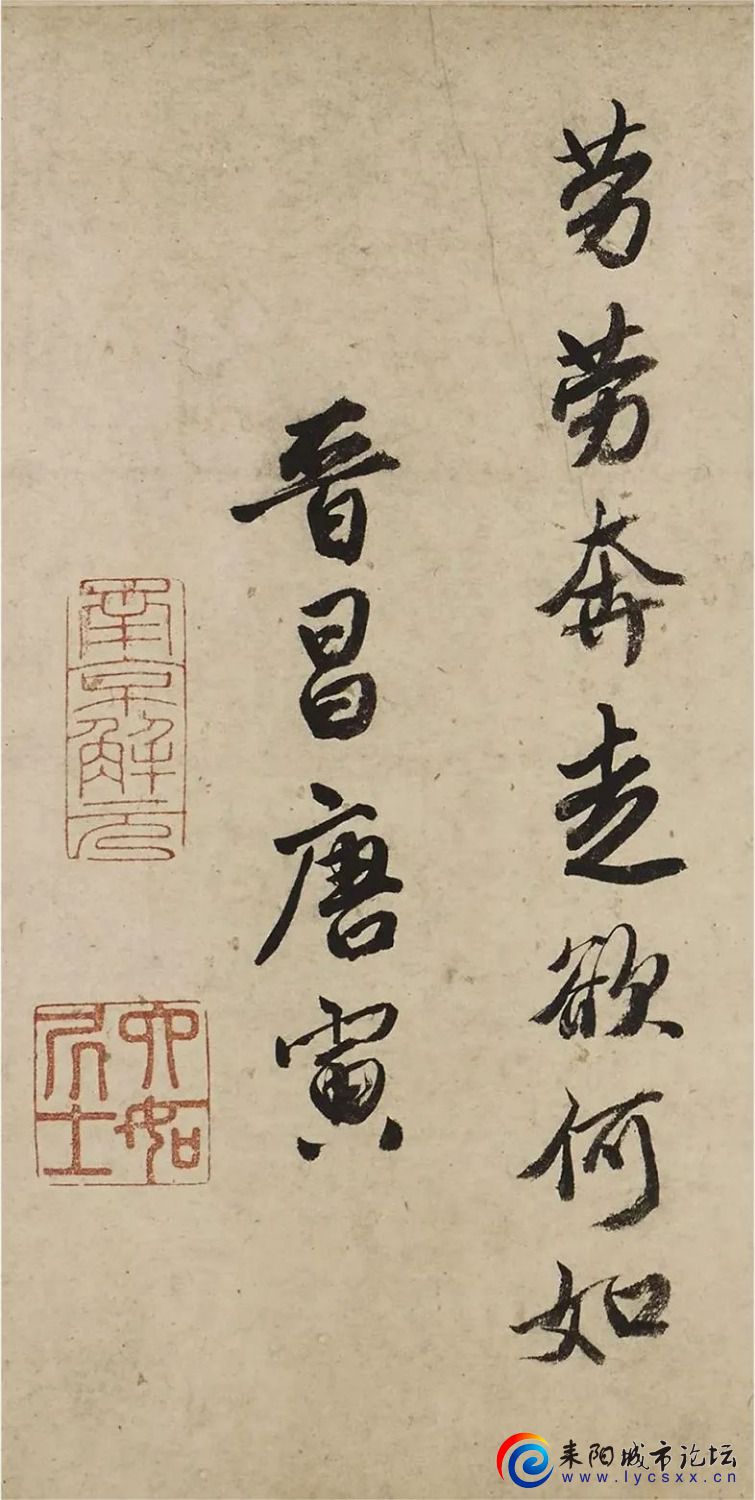 劳劳奔走欲何如
晋昌唐寅
南京解元
六如居士
耒阳城市论坛
www.lycsxx.cn